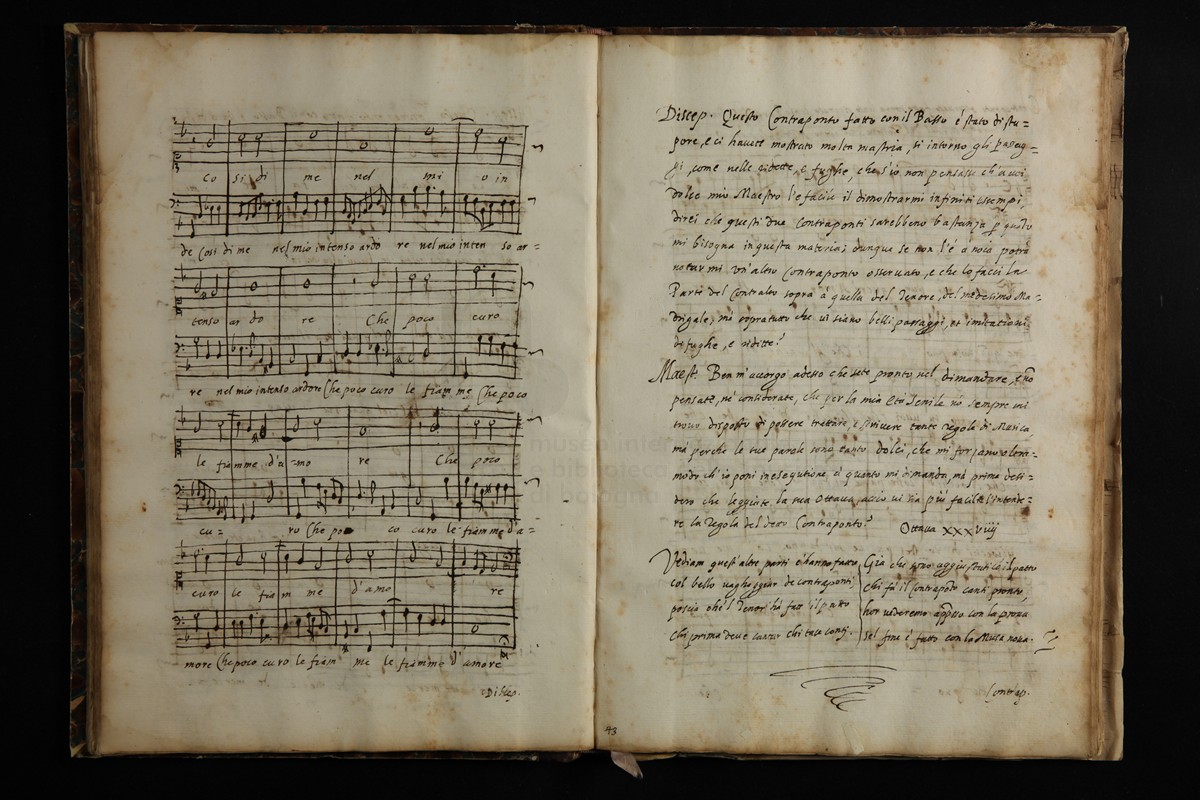 co si di me nel mi o in
de Cosi di me nel mio intenso ardo re nel mio inten so ar=
tenso ar do re Che poco curo
re nel mio intenso ardore Che poco curo le fiam me Che poco
le fiamme d'a=mo re Che poco
cu= ro Che po co curo le fiamme d'a=
curo le fiam me d'amo re
more Che poco curo le fiam me le fiamme d'amore
Discep.
Discep. Questo Contraponto fatto con il Basso è stato di stu=
pore, e ci havete mostrato molta mastria, si intorno gli passag=
gi, come nelle ridette, e fughe, che s'io non pensasse ch'a voi
dolce mio Maestro l'è facile il dimostrarmi infiniti essempi,
direi che questi due Contraponti sarebbeno bastanza p quãto
mi bisogna in questa materia; dunque se non l'è à noia potrà
notarmi un'altro Contraponto osservato, e che lo facci la
Parte del Contralto sopra à quella del Tenore, del medesimo Ma=
drigale; mà sopratutto che vi siano belli passaggi, et imitationi
di fughe, e riditte?
Maest. Ben m'accorgo adesso che sete pronto nel dimandare, e nõ
pensate, nè considerate, che per la mia Età senile nõ sempre mi
trovo disposto di possere trattare, e scrivere tante regole di Musica
mà perche le tue parole sono tanto dolci, che mi forzano volen=
modo ch'io poni in esegutione, ci quanto mi dimandi, mà prima desi=
dero che leggiate la sua Ottava, acciò vi sia più facile l'intende=
re la Regola del detto Contraponto?
Ottava XXXviiij
Vediam quest'altre parti c'hanno fatto
col bello vagheggiar de contraponti
poscia che'l Tenor hà fatto il patto
Chi prima deve cantar chi tace conti.
Già che sono aggiustati co il patto
Chi fà il Contrapõto canti pronto,
hor videremo appresso con la prova
sel fine è fatto con la Musa nova.
Contrap.
43
museo inter
e biblioteca
di bologna